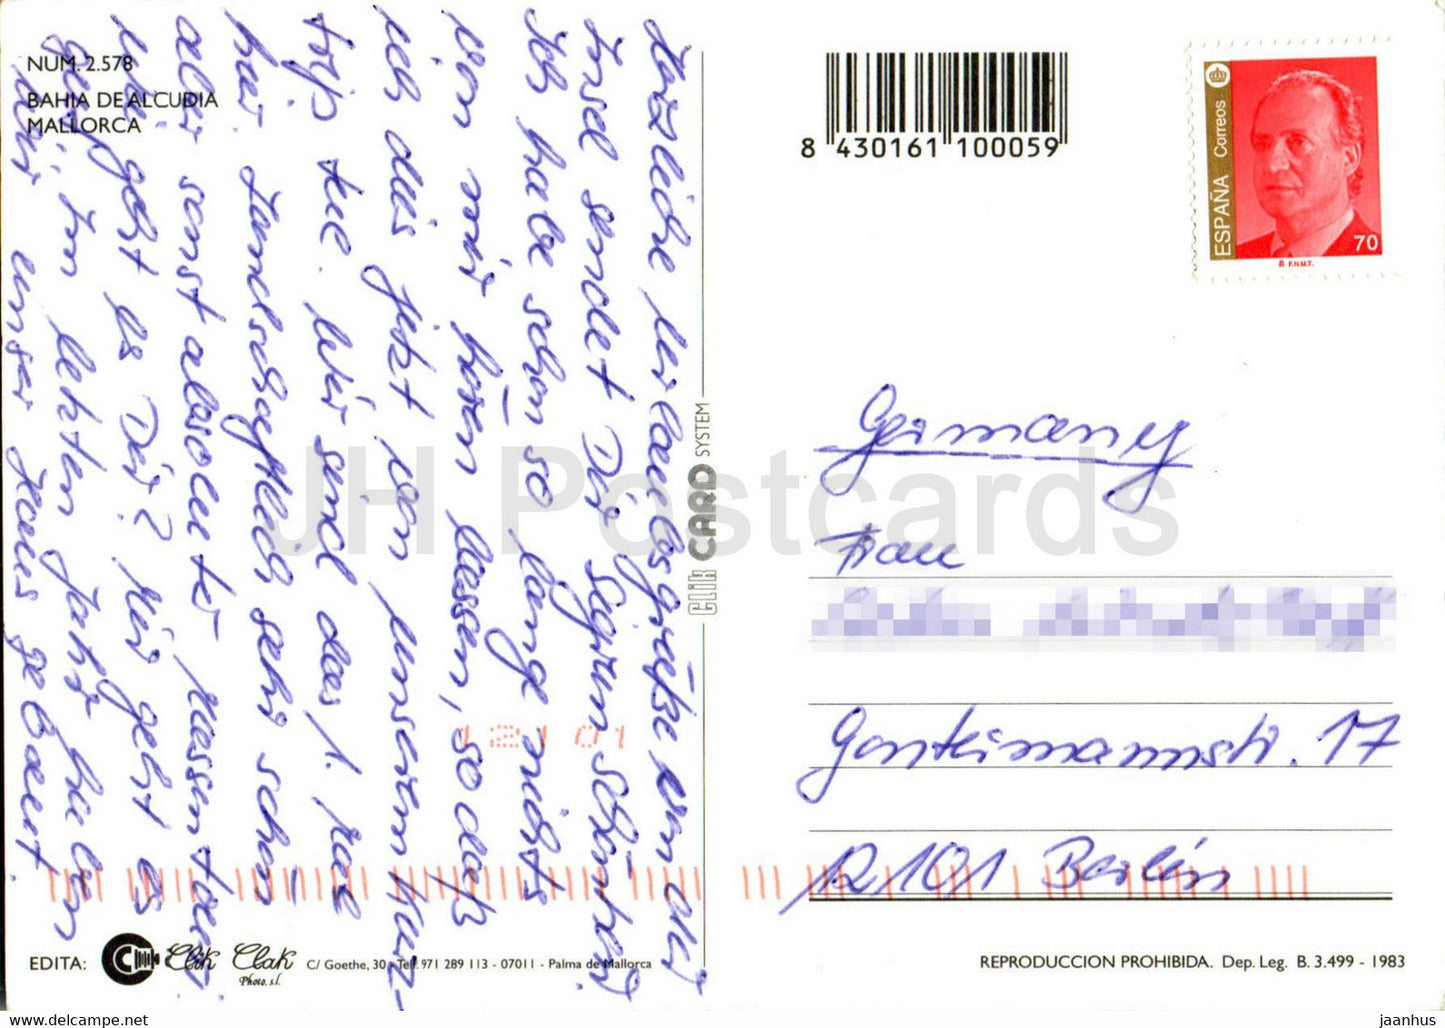 NUM. 2.578
BAHIA DE ALCUDIA
MALLORCA
Herzliche Urlaubsgrüße von der
Insel sendet Dir Sigrun
Ich habe schon so lange nichts
von mir hören lassen, so daß
ich dies jetzt von unserem Kurz-
trip tue. Wir sind das 1. Mal
hier. Landschaftlich sehr schön
aber sonst absoluter Massentour.
Wie geht es Dir? Mir geht es
gut. Im letzten Jahr haben
wir unser Haus gebaut.
CLIK CARD SYSTEM
8 430161 100059
ESPAÑA Correos
70
F.N.M.T.
Germany
Frau
Gontermannstr. 17
12101 Berlin
EDITA: Clik Clak
Photo, s.l.
C/ Goethe, 30 - Telf. 971 289 113 - 07011 - Palma de Mallorca
REPRODUCCION PROHIBIDA. Dep. Leg. B. 3.499 - 1983
JH Postcards
www.delcampe.net
jaanhus